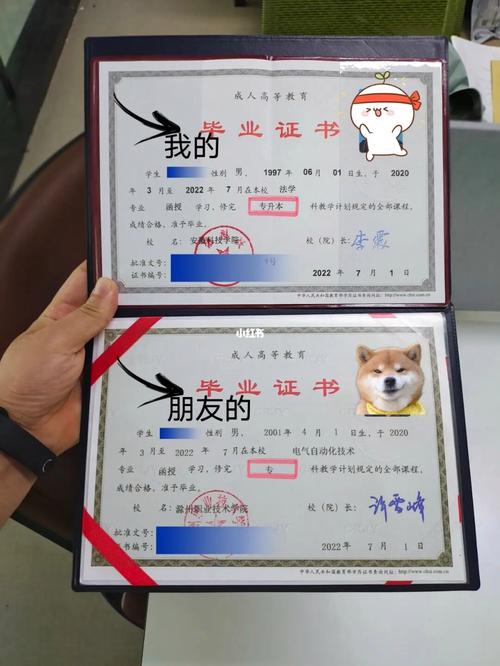 成人高等教育
毕业证书
我的
学生 性别 男, 1997 年 06 月 01 日生,于 2020
年 3 月至 2022 年 7 月在本校 法学
专业 函授 学习,修完 专升本 科教学计划规定的全部课程,
成绩合格,准予毕业。
校 名: 安徽科技学院 校(院)长: 李震
批准文号:
证书编号: 2022 年 7 月 1 日
中华人民共和国教育部学历证书查询网址:http://www.chsi.com.cn
小红书
成人高等教育
毕业证书
朋友的
学生 性别 男, 2001 年 4 月 1 日生,于 2020
年 3 月至 2022 年 7 月在本校 电气自动化技术
专业 函授 学习,修完 专 科教学计划规定的全部课程,
成绩合格,准予毕业。
校 名: 滁州职业技术学院 校(院)长: 许雪峰
批准文号:
证书编号: 2022 年 7 月 1 日
中华人民共和国教育部学历证书查询网址:http://www.chsi.com.cn